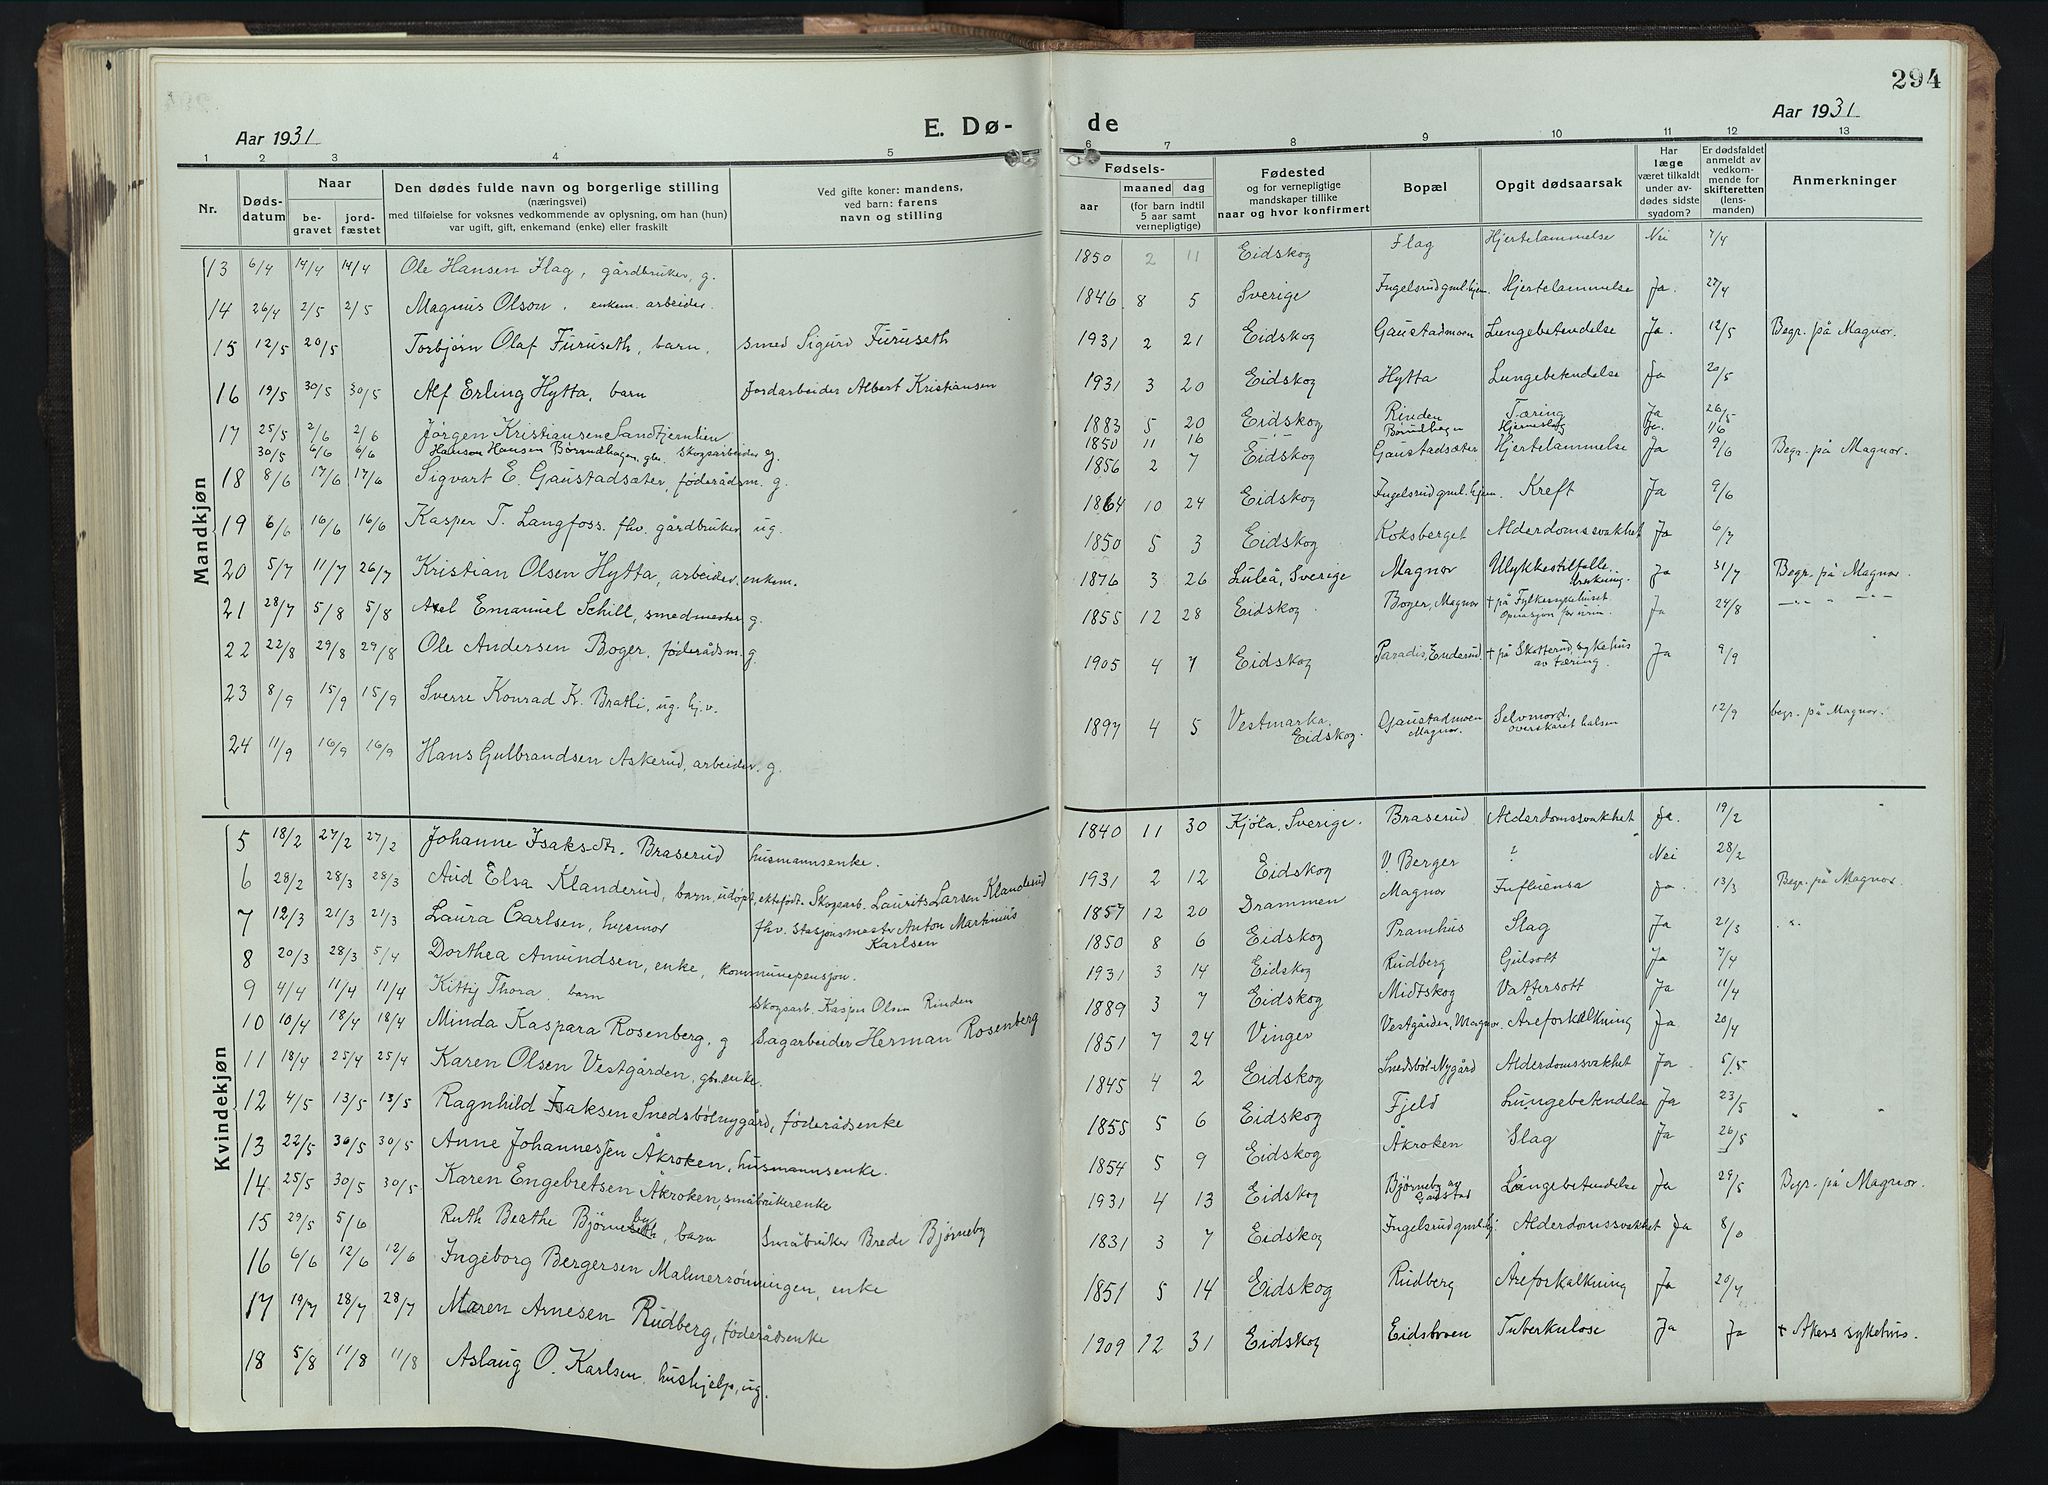 294
Aar 1931 E. Dø- de Aar 1931
1 2 3 4 5 6 7 8 9 10 11 12 13
Nr. Døds-datum Naar be-gravet jord-fæstet Den dødes fulde navn og borgerlige stilling (næringsvei) med tilføielse for voksnes vedkommende av oplysning, om han (hun) var ugift, gift, enkemand (enke) eller fraskilt Ved gifte koner: mandens, ved barn: farens navn og stilling Fødsels- aar maaned dag (for barn indtil 5 aar samt vernepligtige) Fødested og for vernepligtige mandskaper tillike naar og hvor konfirmert Bopæl Opgit dødsaarsak Har læge været tilkaldt under av-dødes sidste sygdom? Er dødsfaldet anmeldt av vedkom-mende for skifteretten (lens-manden) Anmerkninger
Mandkjøn
13 6/4 14/4 14/4 Ole Hansen Flag, gårdbruker, g. 1850 2 11 Eidskog Flag Hjertelammelse Nei 7/4
14 26/4 2/5 2/5 Magnus Olson, enkem. arbeider. 1846 8 5 Sverige Ingelsrud gml.hjem. Hjertelammelse Ja. 27/4
15 12/5 20/5 Torbjørn Olaf Furuseth, barn, smed Sigurd Furuseth 1931 2 21 Eidskog Gaustadmoen Lungebetendelse Ja. 12/5 Begr. på Magnor.
16 19/5 30/5 30/5 Alf Erling Hytta, barn Jordarbeider Albert Kristiansen 1931 3 20 Eidskog Hytta Lungebetendelse Ja 20/5
17 25/5 2/6 2/6 Jørgen Kristiansen Sandtjernlien 1883 5 20 Eidskog Rinden Tæring Ja 26/5
30/5 6/6 6/6 Hanson Hansen Børrudhagen, gbr. skogsarbeider g. 1850 11 16 Børrudhagen Hjerneslag Ja. 1/6
18 8/6 17/6 17/6 Sigvart E. Gaustadsæter, føderådsm. g. 1856 2 7 Eidskog Gaustadsæter Hjertelammelse Ja 9/6 Begr. på Magnor.
19 6/6 16/6 16/6 Kasper T. Langfoss. fhv. gårdbruker ug. 1864 10 24 Eidskog Ingelsrud gml. hjem Kreft Ja 9/6
20 5/7 11/7 26/7 Kristian Olsen Hytta, arbeider, enkem. 1850 5 3 Eidskog Koksberget Alderdomssvakhet Ja 6/7
21 28/7 5/8 5/8 Axel Emanuel Schill, smedmester g. 1876 3 26 Luleå, Sverige Magnor Ulykkestilfelle. Ja 31/7 Begr. på Magnor.
22 22/8 29/8 29/8 Ole Andersen Boger, føderådsm. g. 1855 12 28 Eidskog Boger, Magnor + på Fylkesykehuset Operasjon for urin. Ja 24/8 —"— " —"—
23 8/9 15/9 15/9 Sverre Konrad K. Bratli, ug. hj.v. 1905 4 7 Eidskog Paradis, Enderud. + på Skotterud sykehus av tæring. Ja 9/9
24 11/9 16/9 16/9 Hans Gulbrandsen Askerud, arbeider. g. 1897 4 5 Vestmarka, Eidskog. Gaustadmoen Magnor. Selvmord. overskaret halsen 12/9 begr. på Magnor.
Kvindekjøn
5 18/2 27/2 27/2 Johanne Isaksdtr. Braserud husmannsenke. 1840 11 30 Kjøla, Sverige. Braserud Alderdomssvakhet Ja. 19/2
6 28/2 28/3 28/3 Aud Elsa Klanderud, barn, udøpt, ektefødt. Skogsarb. Laurits Larsen Klanderud 1931 2 12 Eidskog V. Berger ? Nei 28/2
7 12/3 21/3 21/3 Laura Carlsen, husmor fhv. Stasjonsmester Anton Martinius Karlsen 1857 12 20 Drammen Magnor Influensa Ja. 13/3 Begr. på Magnor.
8 20/3 28/3 5/4 Dorthea Amundsen, enke, kommunepensjon. 1850 8 6 Eidskog Pramhus Slag Ja 21/3
9 4/4 11/4 11/4 Kitty Thora, barn Skogsarb. Kasper Olsen Rinden 1931 3 14 Eidskog Rudberg Gulsott Ja 7/4
10 10/4 18/4 18/4 Minda Kaspara Rosenberg, g Sagarbeider Herman Rosenberg 1889 3 7 Eidskog Midtskog Vattersott Ja 11/4
11 18/4 25/4 25/4 Karen Olsen Vestgården, gbr.enke. 1851 7 24 Vinger Vestgården, Magnor. Åreforkalkning Ja 20/4
12 4/5 13/5 13/5 Ragnhild Isaksen Snedsbølnygård, føderådsenke 1845 4 2 Eidskog Snedsbøl-Nygård Alderdomssvakhet Ja 5/5
13 22/5 30/5 30/5 Anne Johannessen Åkroken, husmannsenke. 1855 5 6 Eidskog Fjeld Lungebetendelse Ja 23/5
14 25/5 30/5 30/5 Karen Engebretsen Åkroken, småbrukerenke 1854 5 9 Eidskog Åkroken Slag Ja 26/5
15 29/5 5/6 Ruth Beathe Bjørneby, barn Småbruker Brede Bjørneby 1931 4 13 Eidskog Bjørneby av Gaustad Lungebetendelse Ja 29/5 Begr. på Magnor.
16 6/6 12/6 12/6 Ingeborg Bergersen Malmerrønningen, enke 1831 3 7 Eidskog Ingelsrud gml.hj. Alderdomssvakhet Ja 8/0
17 19/7 28/7 28/7 Maren Arnesen Rudberg, føderådsenke 1851 5 14 Eidskog Rudberg Åreforkalkning Ja 20/7
18 5/8 11/8 11/8 Aslaug O. Karlsen, hushjelp, ug. 1909 12 31 Eidskog Eidsbroen Tuberkulose Ja Ja + Akers sykehus.